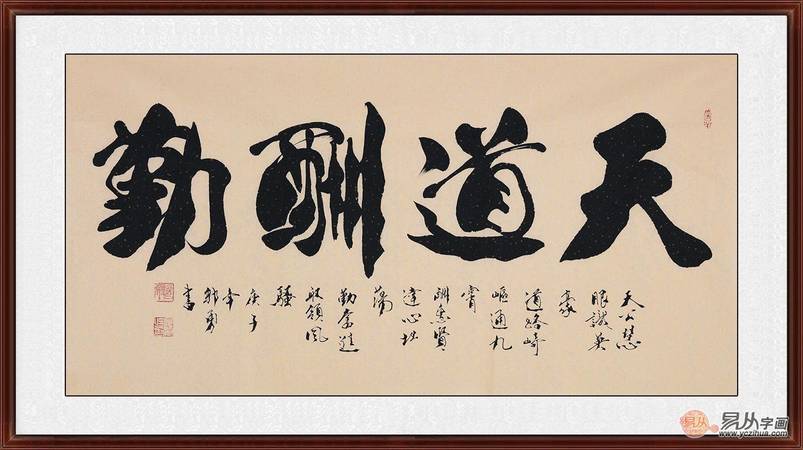 天道酬勤
天公慧
眼識英
豪
道路崎
嶇通九
霄
酬賢
達心坦
蕩
勤奮進
取領風
騷
庚子
年
勇
書
易从字画
www.yczihua.com